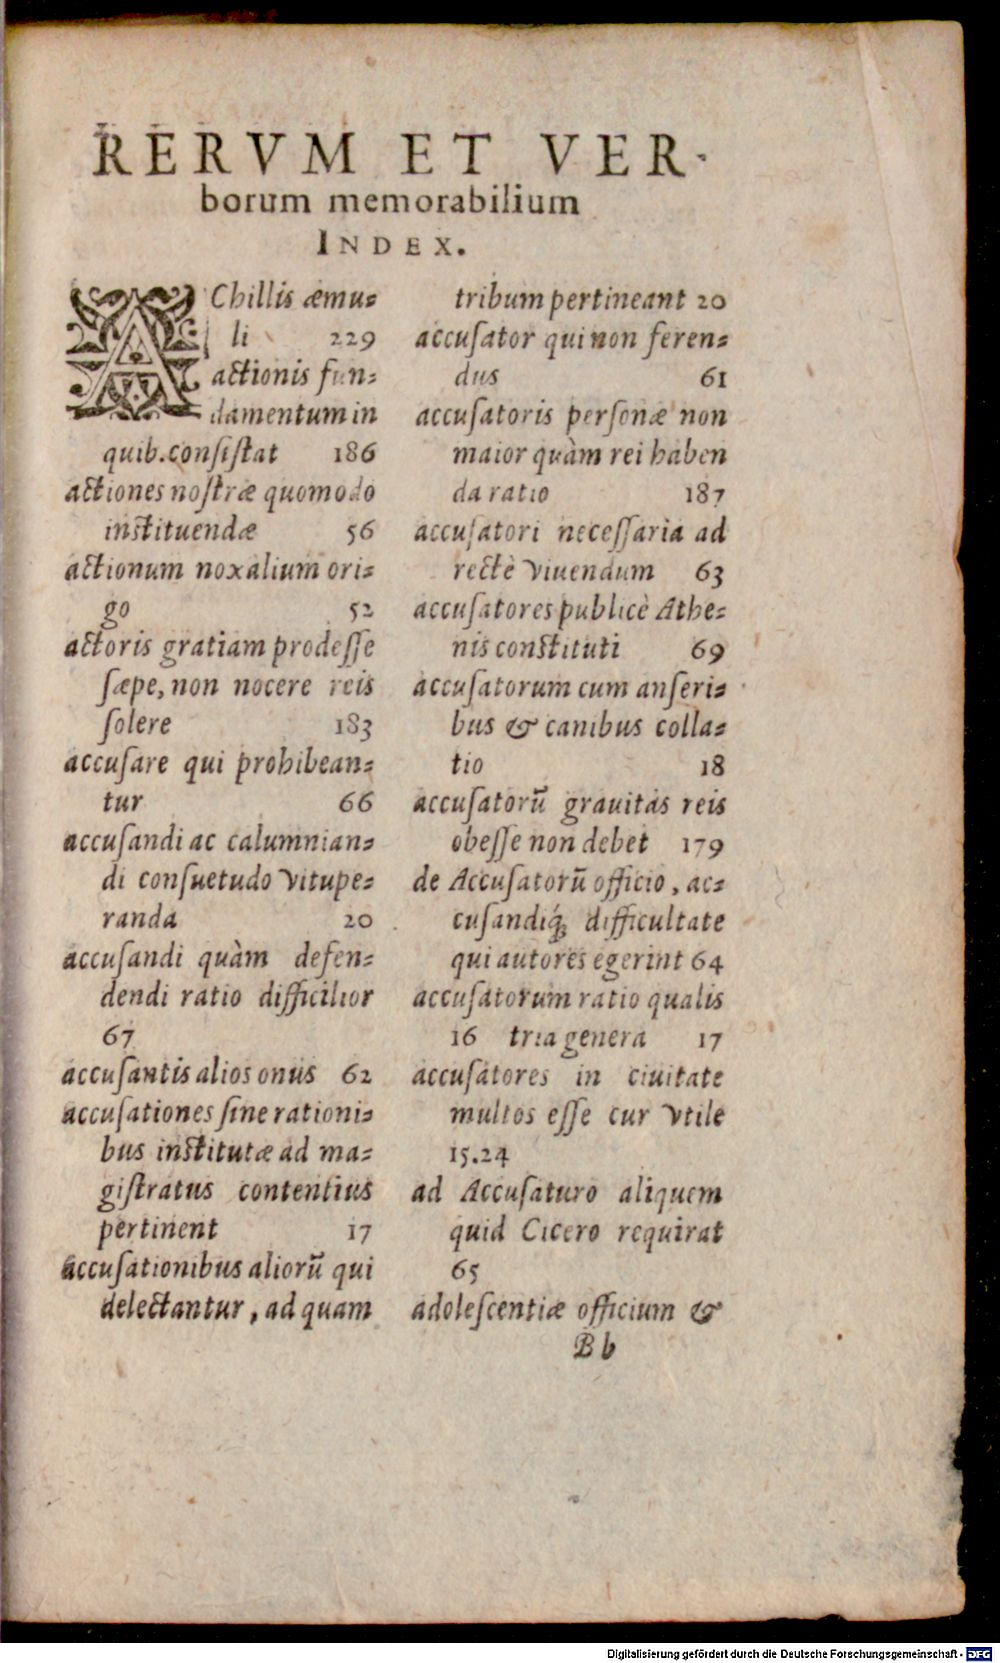 RERVM ET VER-
borum memorabilium
INDEX.
AChillis æmu-
li 229
actionis fun-
damentum in
quib. consistat 186
actiones nostræ quomodo
instituendæ 56
actionum noxalium ori-
go 52
actoris gratiam prodesse
sæpe, non nocere reis
solere 183
accusare qui prohibean-
tur 66
accusandi ac calumnian-
di consuetudo vitupe-
randa 20
accusandi quàm defen-
dendi ratio difficilior
67
accusantis alios onus 62
accusationes sine rationi-
bus institutæ ad ma-
gistratus contentius
pertinent 17
accusationibus aliorū qui
delectantur, ad quam
tribum pertineant 20
accusator qui non feren-
dus 61
accusatoris personæ non
maior quàm rei haben
da ratio 187
accusatori necessaria ad
rectè viuendum 63
accusatores publicè Athe-
nis constituti 69
accusatorum cum anseri-
bus & canibus colla-
tio 18
accusatorū grauitas reis
obesse non debet 179
de Accusatorū officio, ac-
cusandiq́; difficultate
qui autores egerint 64
accusatorum ratio qualis
16 tria genera 17
accusatores in ciuitate
multos esse cur vtile
15.24
ad Accusaturo aliquem
quid Cicero requirat
65
adolescentiæ officium &
Bb
Digitalisierung gefördert durch die Deutsche Forschungsgemeinschaft - DFG